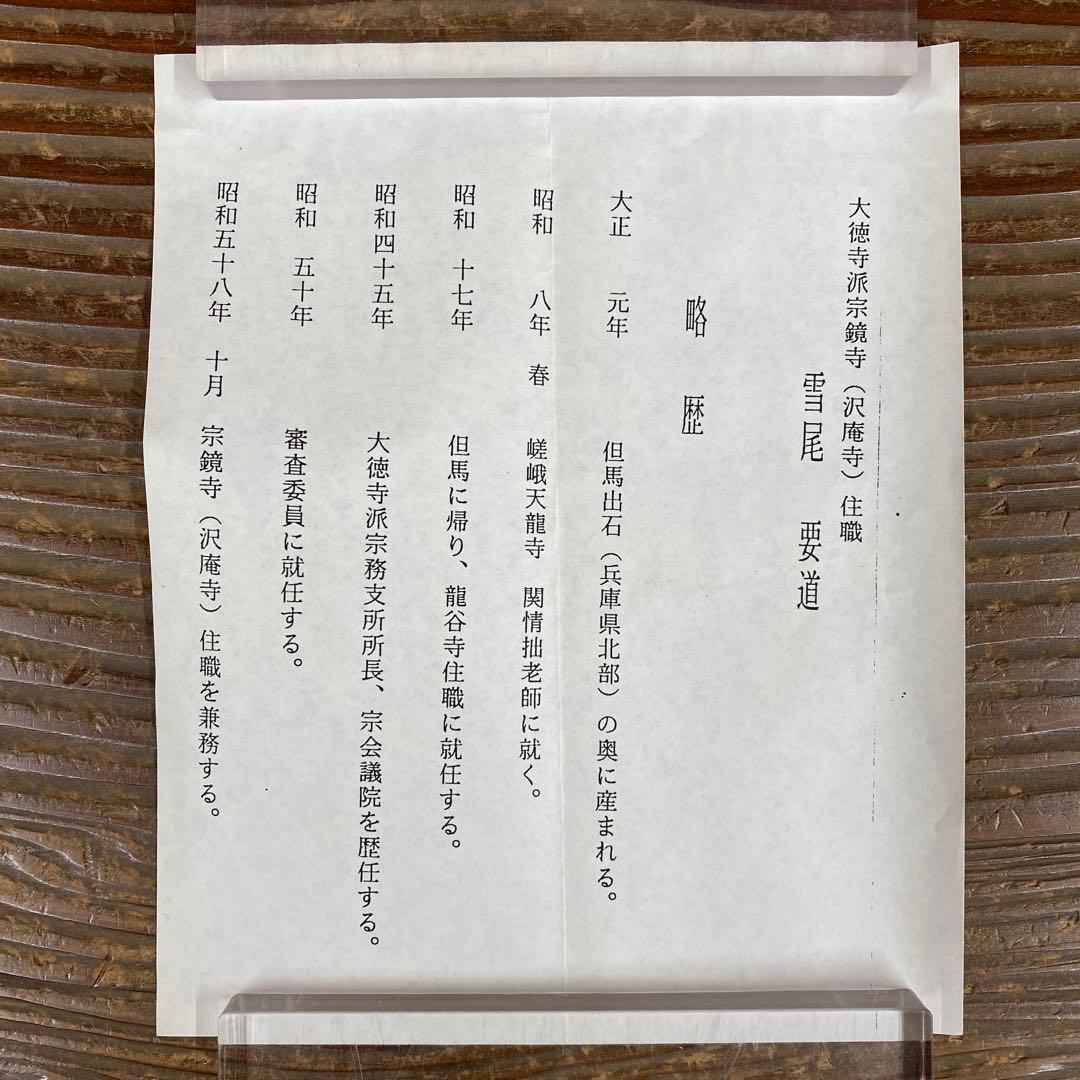 大徳寺派宗鏡寺（沢庵寺）住職
雪尾 要道
略歴
大正 元年 但馬出石（兵庫県北部）の奥に産まれる。
昭和 八年 春 嵯峨天龍寺 関情拙老師に就く。
昭和 十七年 但馬に帰り、龍谷寺住職に就任する。
昭和四十五年 大徳寺派宗務支所所長、宗会議院を歴任する。
昭和 五十年 審査委員に就任する。
昭和五十八年 十月 宗鏡寺（沢庵寺）住職を兼務する。